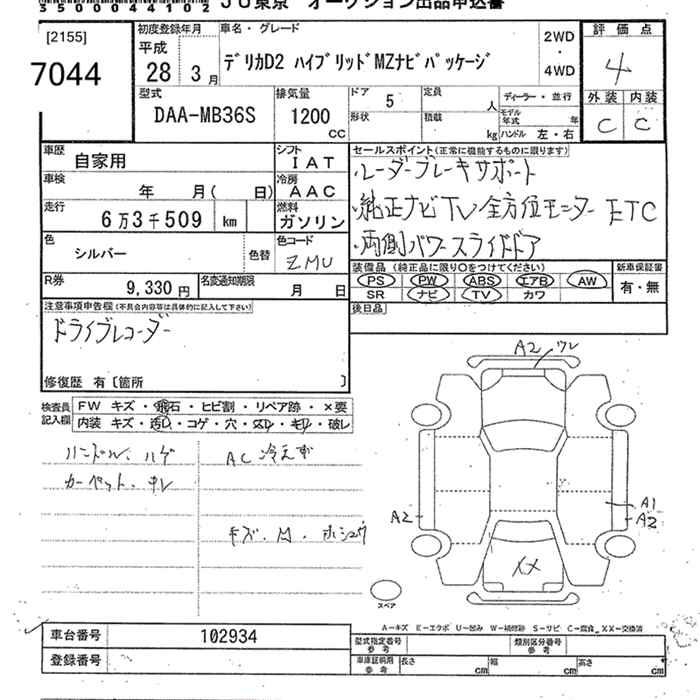 35000044102 JU東京 オークション出品申込書
[2155]
7044
初度登録年月
平成
28 3月
車名・グレード
デリカD2 ハイブリッドMZナビパッケージ
2WD
・
4WD
評価点
4
外装 内装
C C
型式
DAA-MB36S
排気量
1200
cc
ドア 5
形状
定員 人
積載 kg
ディーラー・並行
モデル年式 年
ハンドル 左・右
車歴
自家用
シフト
IAT
車検
年 月( 日)
冷房
AAC
走行
6万3千509 km
燃料
ガソリン
色
シルバー
色替
色コード
ZMU
R券
9,330円
名変通知期限
月 日
セールスポイント(正常に機能するものに限ります)
・レーダーブレーキサポート
・純正ナビTV 全方位モニター ETC
・両側パワースライドドア
装備品(純正品に限り○をつけてください)
PS PW ABS エアB AW
SR ナビ TV カワ
新車保証書
有・無
後日品
注意事項申告欄(不具合内容等は具体的に記入して下さい)
ドライブレコーダー
修復歴 有〔箇所 〕
検査員
記入欄
FW キズ・飛石・ヒビ割・リペア跡・×要
内装 キズ・汚れ・コゲ・穴・スレ・キレ・破レ
ハンドル、ハゲ
カーペット、キレ
AC 冷えず
キズ、凹、ホシュウ
A2 ワレ
A2
A1
A2
スペア
A―キズ E―エクボ U―凹み W―補修跡 S―サビ C―腐食 XX―交換済
車台番号 102934
登録番号
型式指定番号
参考
類別区分番号
参考
車庫証明用
参考
長さ cm
幅 cm
高さ cm